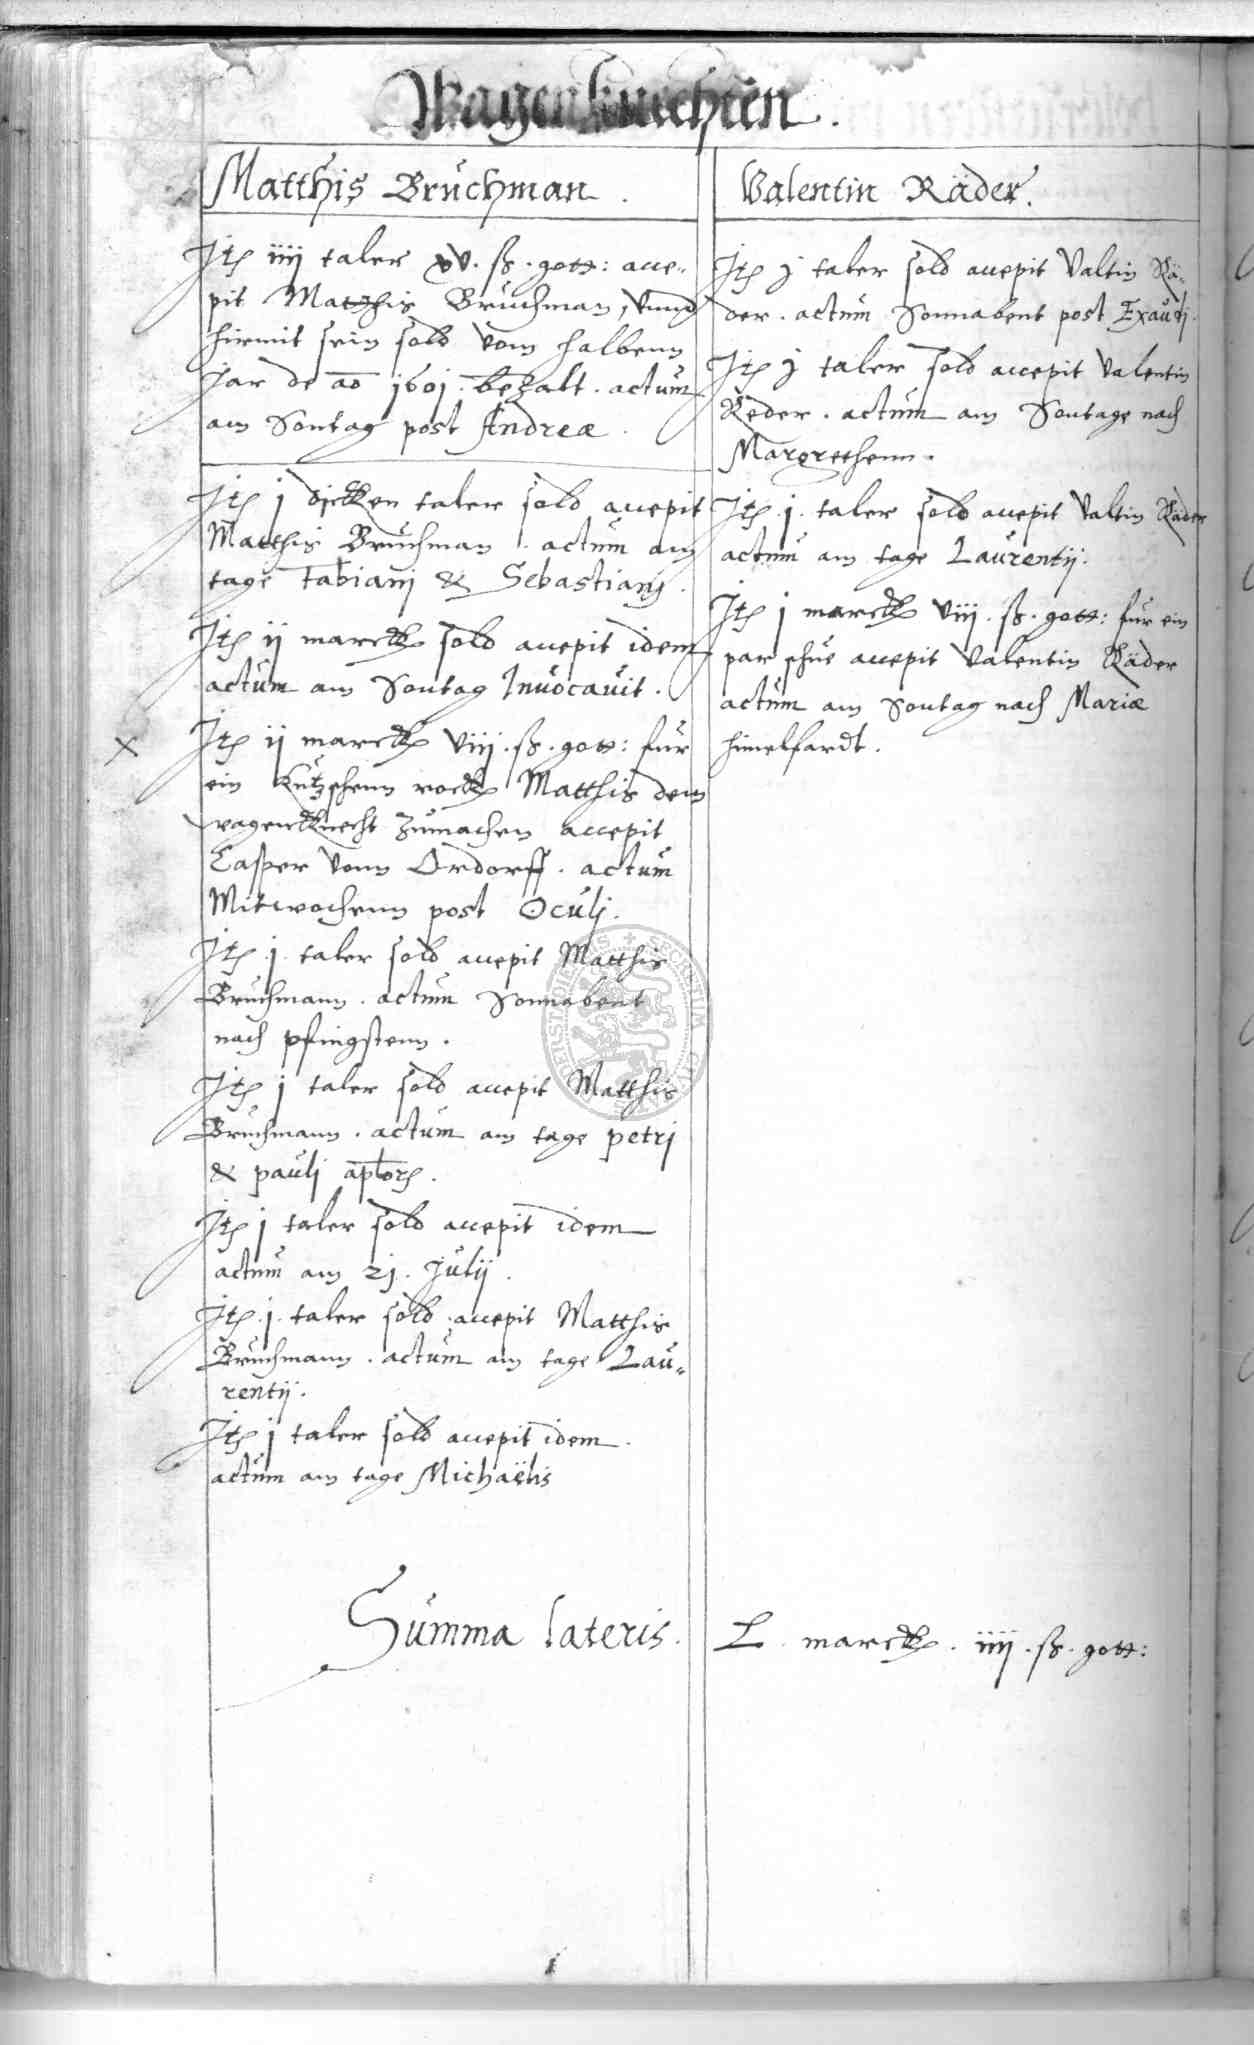 Wagenknechten.
Matthis Bruchman.
Jtem iiij taler xv. ß. gott: acce-
pit Matthis Bruchman, vnnd
hirmit sein sold vom halbenn
Jar de ao 1601. bezalt. actum
am Sontag post Andreæ.
Jtem j dickken taler sold accepit
Matthis Bruchman. actum am
tage Fabianj & Sebastianj.
Jtem ij marckk sold accepit idem
actum am Sontag Jnuocauit.
Jtem ij marckk viij. ß. gott: fur
ein kutzschenn rockk Matthis dem
wagenckknecht zumachen accepit
Casper vonn Ordorff. actum
Mitwochenn post Oculj.
Jtem .j. taler sold accepit Matthis
Bruchmann. actum Sonnabent
nach pfingstenn.
Jtem j taler sold accepit Matthis
Bruchmann. actum am tage petrj
& paulj aplor.
Jtem j taler sold accepit idem
actum am 21. Julij.
Jtem .j. taler sold accepit Matthis
Bruchmann. actum am tage Lau-
rentij.
Jtem j taler sold accepit idem.
actum am tage Michaëlis
Valentin Räder.
Jtem j taler sold accepit Valtin Rä-
der. actum Sonnabent post Exaudj.
Jtem j taler sold accepit Valentin
Reder. actum am Sontage nach
Margrethenn.
Jtem .j. taler sold accepit Valtin Räder
actum am tage Laurentij.
Jtem j marckk viij. ß. gott: fur ein
par schue accepit Valentin Räder
actum am Sontag nach Mariæ
himelfardt.
Summa lateris. L. marckk. iiij. ß. gott: